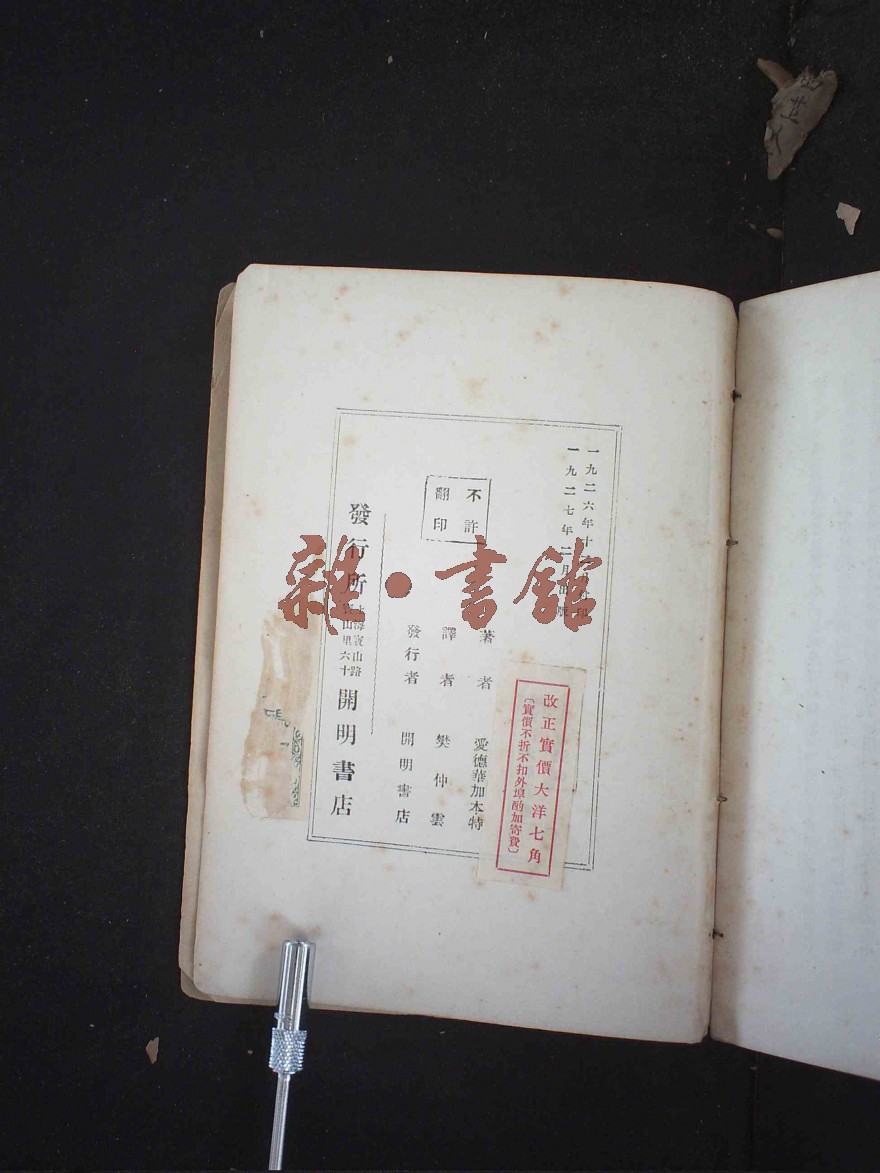 一九二六年十月付印
一九二七年二月出版
不許
翻印
著者 愛德華加本特
譯者 樊仲雲
發行者 開明書店
發行所 上海寶山路
寶山里六十
開明書店
改正實價大洋七角
〔實價不折不扣外埠酌加寄費〕
雜·書館